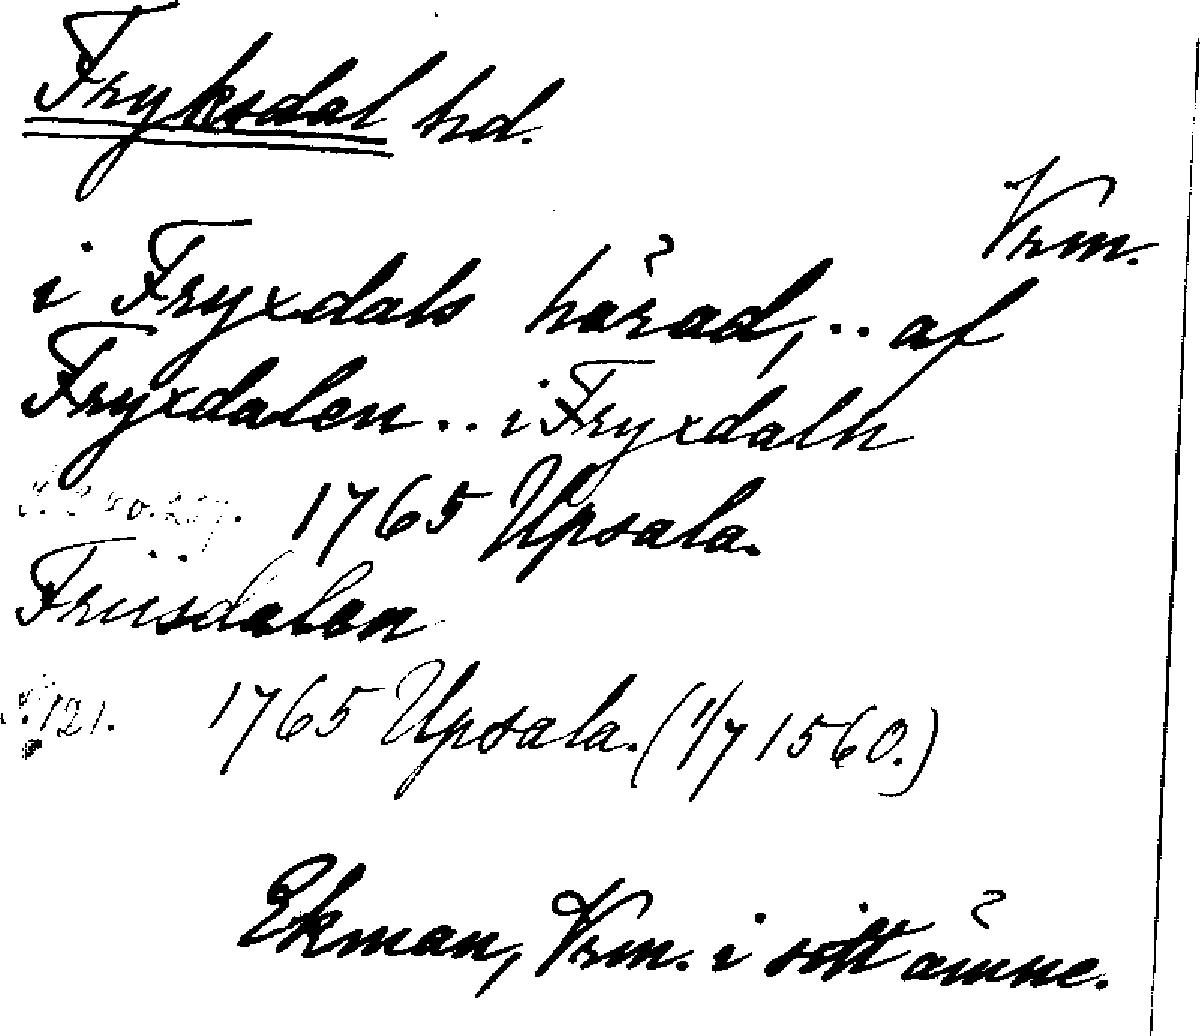 Fryksdal hd.
Vrm.
i Fryxdals härad, .. af
Fryxdalen .. i Fryxdaln
1765 Upsala.
Früsdalen
S. 121. 1765 Upsala. (1/7 1560.)
Ekman, Vrm. i sitt ämne.